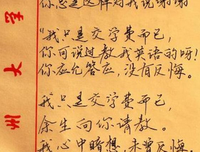 你总是这样对我说谢谢
"我只是交学费而已,
你可说过教我英语的呀!
你应允答应,没有反悔。
我只是交学费而已,
余生向你请教。
我心中暗想,未曾反悔
州大学